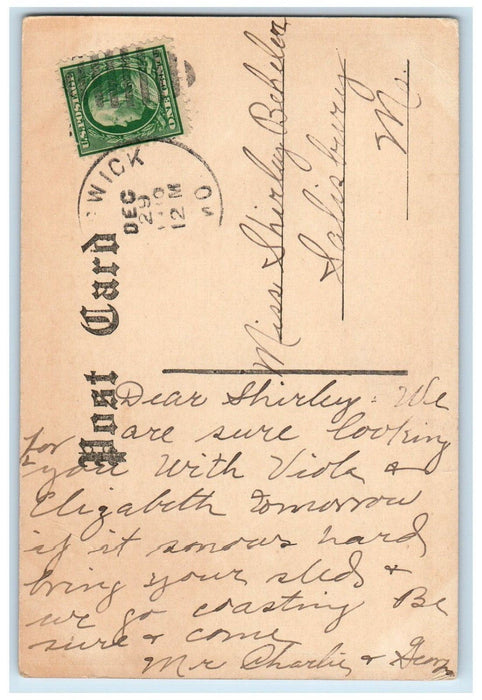 U.S. POSTAGE
ONE CENT
WICK
MO.
DEC
29
12 M
Post Card
Miss Shirley Beheler
Salisbury
Mo.
Dear Shirley: We
are sure looking
for
you with Viola &
Elizabeth tomorrow
if it snows hard
bring your sleds &
we go coasting Be
sure & come
Mr Charlie & Geor